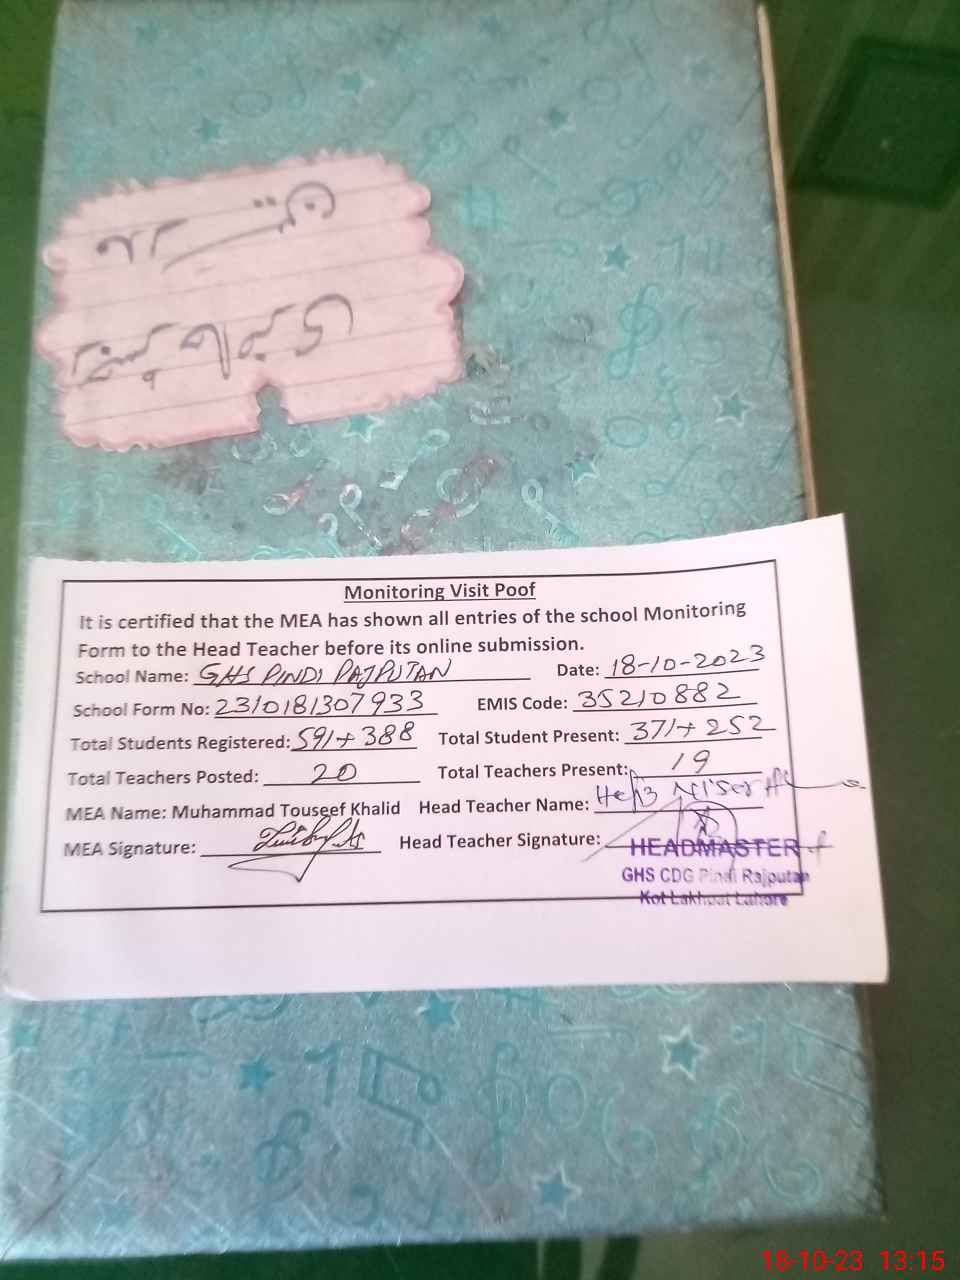 Monitoring Visit Poof
It is certified that the MEA has shown all entries of the school Monitoring
Form to the Head Teacher before its online submission.
School Name: GHS PINDI RAJPUTAN Date: 18-10-2023
School Form No: 2310181307933 EMIS Code: 35210882
Total Students Registered: 591+388 Total Student Present: 371+252
Total Teachers Posted: 20 Total Teachers Present: 19
MEA Name: Muhammad Touseef Khalid Head Teacher Name:
MEA Signature: Head Teacher Signature:
HEADMASTER
GHS CDG Pindi Rajputan
Kot Lakhpat Lahore
18-10-23 13:15